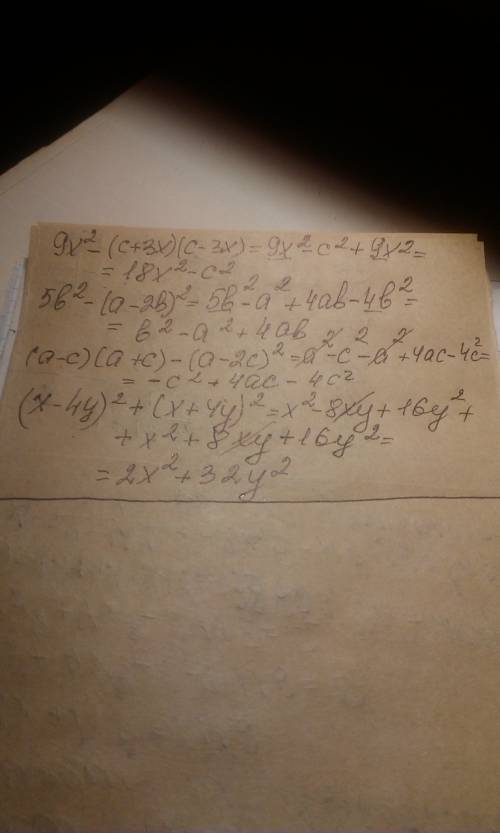 9x² - (c+3x)(c-3x) = 9x² - c² + 9x2 =
= 18x² - c²
5b² - (a-2b)² = 5b² - a² + 4ab - 4b² =
= b² - a² + 4ab
(a-c)(a+c) - (a-2c)² = a² - c² - a² + 4ac - 4c² =
= -c² + 4ac - 4c²
(x-4y)² + (x+4y)² = x² - 8xy + 16y² +
+ x² + 8xy + 16y² =
= 2x² + 32y²